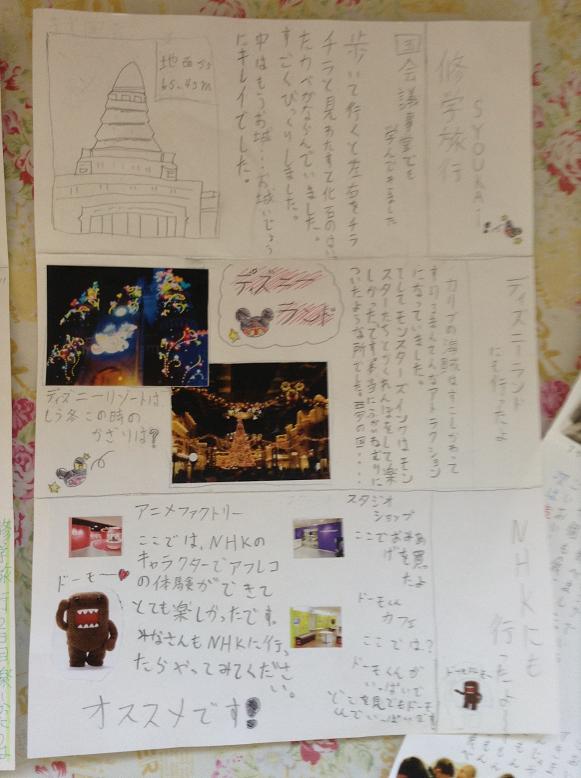 修学旅行
SYOUKAI
国会議事堂でも
学んできました
歩いて行くと左右をチラ
チラと見わたすて化石のはい
たカベがならんでいました。
すごくびっくりしました。
中はもうお城…お城いじょう
にキレイでした。
地面から
65.45m
ディズニーランド
にも行ったよ
カリブの海賊はすこしかわって
になっていました。
そしてモンスターズインクはモン
スターたちとかくれんぼをして楽
しかったです。本当にふかいねむりに
ついたような所でした。夢の国…
ディズニー
ランド
ディズニーリゾートは
もう冬この時の
かざりは?
NHKにも
行ったよ〜
アニメファクトリー
ここでは、NHKの
キャラクターでアフレコ
の体験ができて
とても楽しかったです。
みなさんもNHKに行っ
たらやってみてくださ
い。
オススメです!
ドーモー
スタジオ
ショップ
ここでおみあ
げを買っ
たよ
ドーモくん
カフェ
ここでは?
ドーモくんが
いっぱいで
どこを見てもドーモ
くんでいっぱいです
ドーモドーモ〜
修学旅行2日目